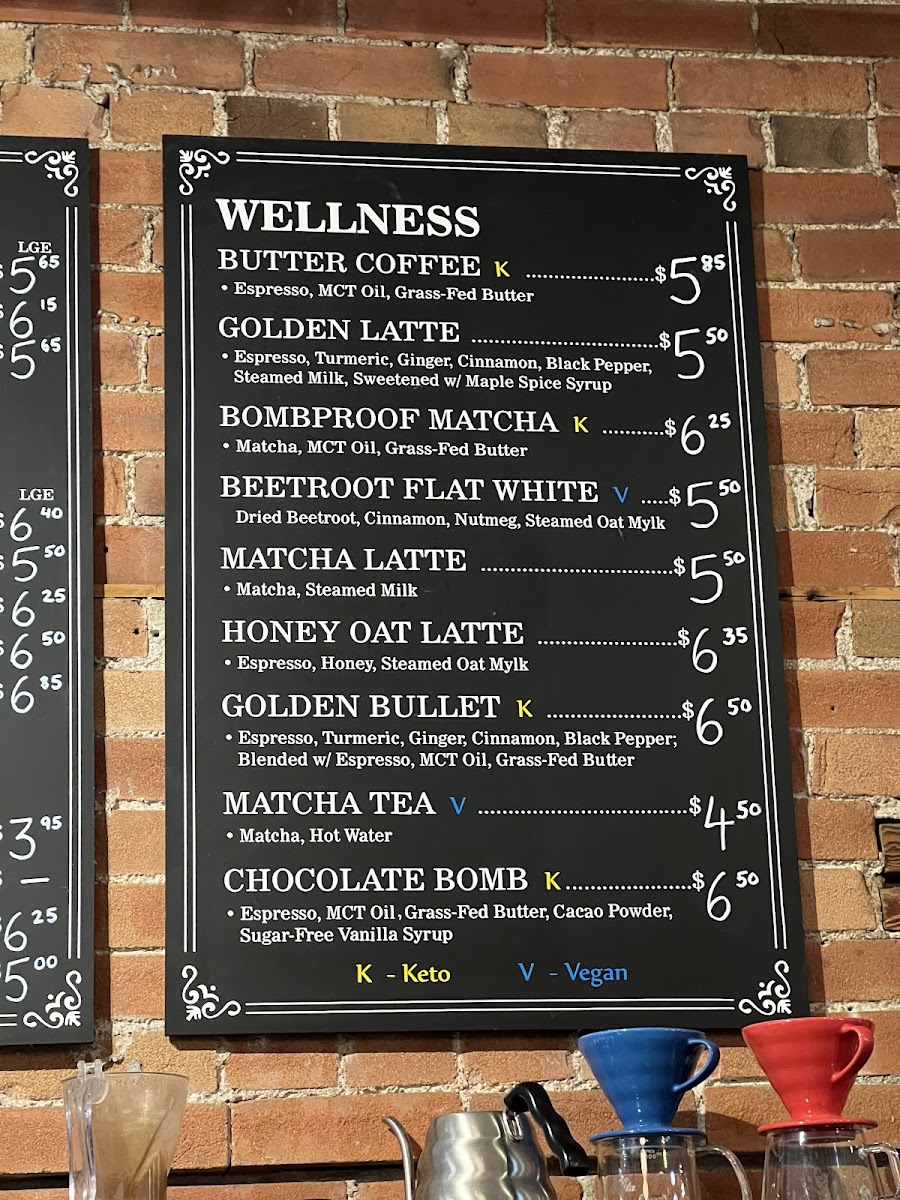 LGE
$5 65
$6 15
$5 65
LGE
$6 40
$5 50
$6 25
$6 50
$6 85
$3 95
$ —
$6 25
$5 00
WELLNESS
BUTTER COFFEE K ........................$5 85
• Espresso, MCT Oil, Grass-Fed Butter
GOLDEN LATTE ...................................$5 50
• Espresso, Turmeric, Ginger, Cinnamon, Black Pepper,
Steamed Milk, Sweetened w/ Maple Spice Syrup
BOMBPROOF MATCHA K ...........$6 25
• Matcha, MCT Oil, Grass-Fed Butter
BEETROOT FLAT WHITE V .....$5 50
Dried Beetroot, Cinnamon, Nutmeg, Steamed Oat Mylk
MATCHA LATTE ...................................$5 50
• Matcha, Steamed Milk
HONEY OAT LATTE .........................$6 35
• Espresso, Honey, Steamed Oat Mylk
GOLDEN BULLET K ........................$6 50
• Espresso, Turmeric, Ginger, Cinnamon, Black Pepper;
Blended w/ Espresso, MCT Oil, Grass-Fed Butter
MATCHA TEA V .....................................$4 50
• Matcha, Hot Water
CHOCOLATE BOMB K......................$6 50
• Espresso, MCT Oil, Grass-Fed Butter, Cacao Powder,
Sugar-Free Vanilla Syrup
K - Keto V - Vegan